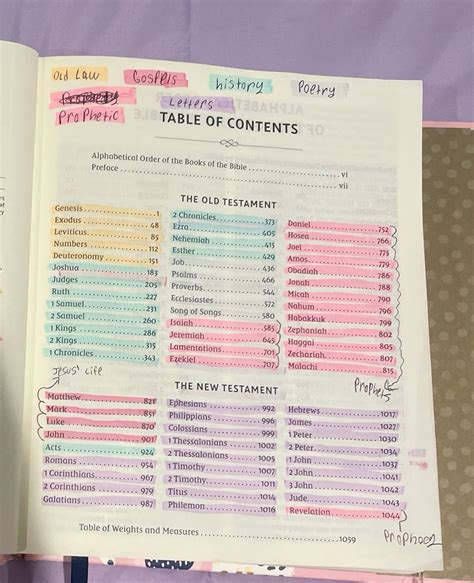 Old Law
Gospels
history
Poetry
Prophetic
Letters
TABLE OF CONTENTS
Alphabetical Order of the Books of the Bible ..... vi
Preface ..... vii
THE OLD TESTAMENT
Genesis ..... 1
Exodus ..... 48
Leviticus ..... 85
Numbers ..... 112
Deuteronomy ..... 151
Joshua ..... 183
Judges ..... 205
Ruth ..... 227
1 Samuel ..... 231
2 Samuel ..... 260
1 Kings ..... 286
2 Kings ..... 315
1 Chronicles ..... 343
2 Chronicles ..... 373
Ezra ..... 405
Nehemiah ..... 415
Esther ..... 429
Job ..... 436
Psalms ..... 466
Proverbs ..... 544
Ecclesiastes ..... 572
Song of Songs ..... 580
Isaiah ..... 585
Jeremiah ..... 645
Lamentations ..... 701
Ezekiel ..... 707
Daniel ..... 752
Hosea ..... 766
Joel ..... 775
Amos ..... 779
Obadiah ..... 786
Jonah ..... 788
Micah ..... 790
Nahum ..... 796
Habakkuk ..... 799
Zephaniah ..... 802
Haggai ..... 805
Zechariah ..... 807
Malachi ..... 815
Jesus' Life
Prophets
THE NEW TESTAMENT
Matthew ..... 821
Mark ..... 851
Luke ..... 870
John ..... 901
Acts ..... 924
Romans ..... 954
1 Corinthians ..... 967
2 Corinthians ..... 979
Galatians ..... 987
Ephesians ..... 992
Philippians ..... 996
Colossians ..... 999
1 Thessalonians ..... 1002
2 Thessalonians ..... 1005
1 Timothy ..... 1007
2 Timothy ..... 1011
Titus ..... 1014
Philemon ..... 1016
Hebrews ..... 1017
James ..... 1027
1 Peter ..... 1030
2 Peter ..... 1034
1 John ..... 1037
2 John ..... 1041
3 John ..... 1042
Jude ..... 1043
Revelation ..... 1044
Table of Weights and Measures ..... 1059